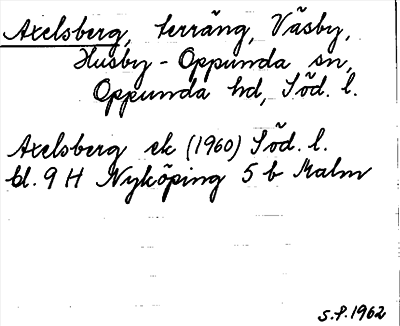 Axelsberg, terräng, Väsby,
Husby-Oppunda sn,
Oppunda hd, Söd. l.
Axelsberg ek (1960) Söd. l.
bl. 9 H Nyköping 5 b Malm
S.P. 1962